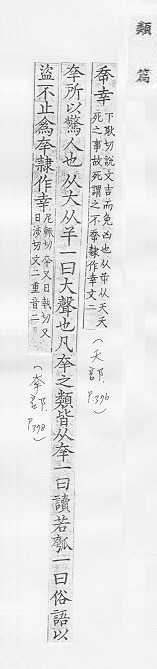 類篇
𠂹幸下耿切說文吉而免凶也从屰从夭夭
死之事故死謂之不𠂹隸作幸文二
(夭部
P.396)
㚔所以驚人也从大从𢆉一曰大聲也凡㚔之類皆从㚔一曰讀若瓠一曰俗語以
盜不止為㚔隸作幸尼輒切㚔又日執切又
日涉切文二重音二
(㚔部
P.398)